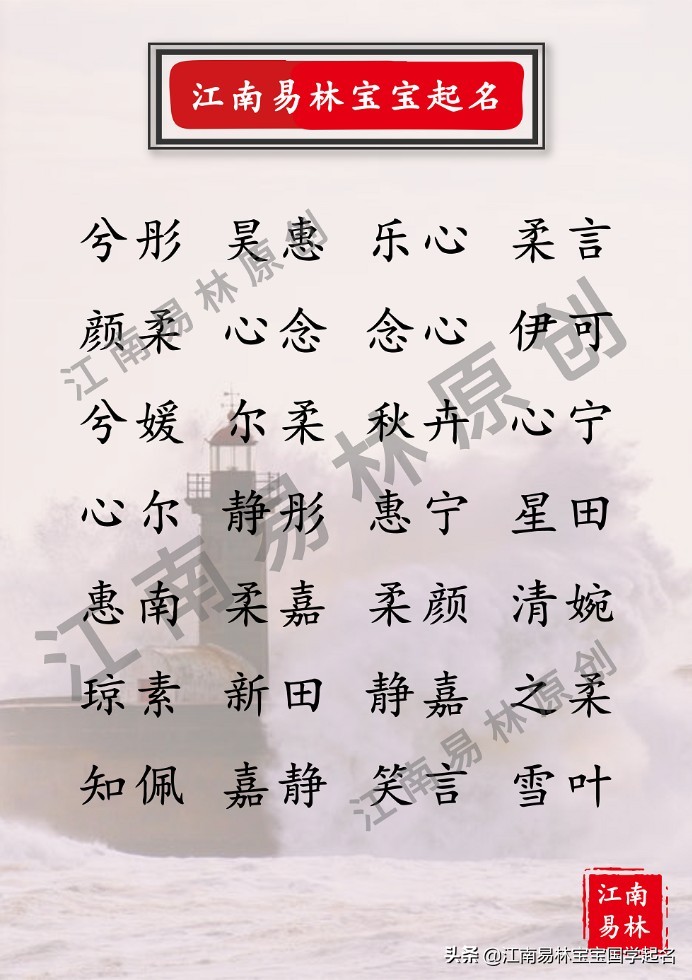 江南易林宝宝起名
兮彤 昊惠 乐心 柔言
颜柔 心念 念心 伊可
兮媛 尔柔 秋卉 心宁
心尔 静彤 惠宁 星田
惠南 柔嘉 柔颜 清婉
琼素 新田 静嘉 之柔
知佩 嘉静 笑言 雪叶
江南易林原创
江南易林原创
江南易林原创
江南
易林
头条 @江南易林宝宝国学起名